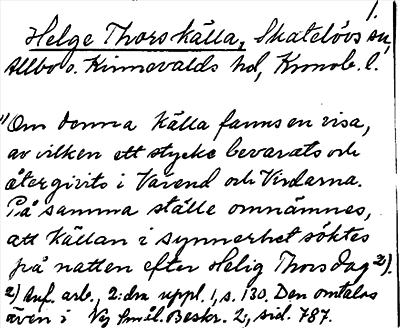 1.
Helge Thors källa, Skatelövs sn,
Allbo o. Kinnevalds hd, Kronob. l.
"Om denna källa fanns en visa,
av vilken ett stycke bevarats och
återgivits i Värend och Virdarna.
På samma ställe omnämnes,
att källan i synnerhet söktes
på natten efter Helig Thorsdag 2).
2) Anf. arb., 2:dra uppl. 1, s. 130. Den omtalas
även i Ny Smål. Beskr. 2, sid. 787.